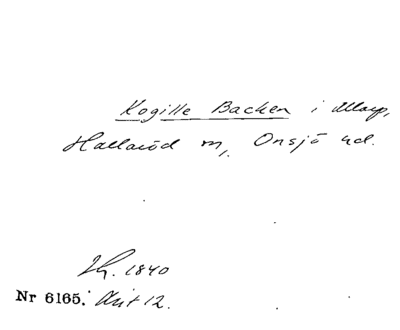 Kogille Backen i Allarp,
Hallaröd m, Onsjö hd.
1840
Nr 6165.